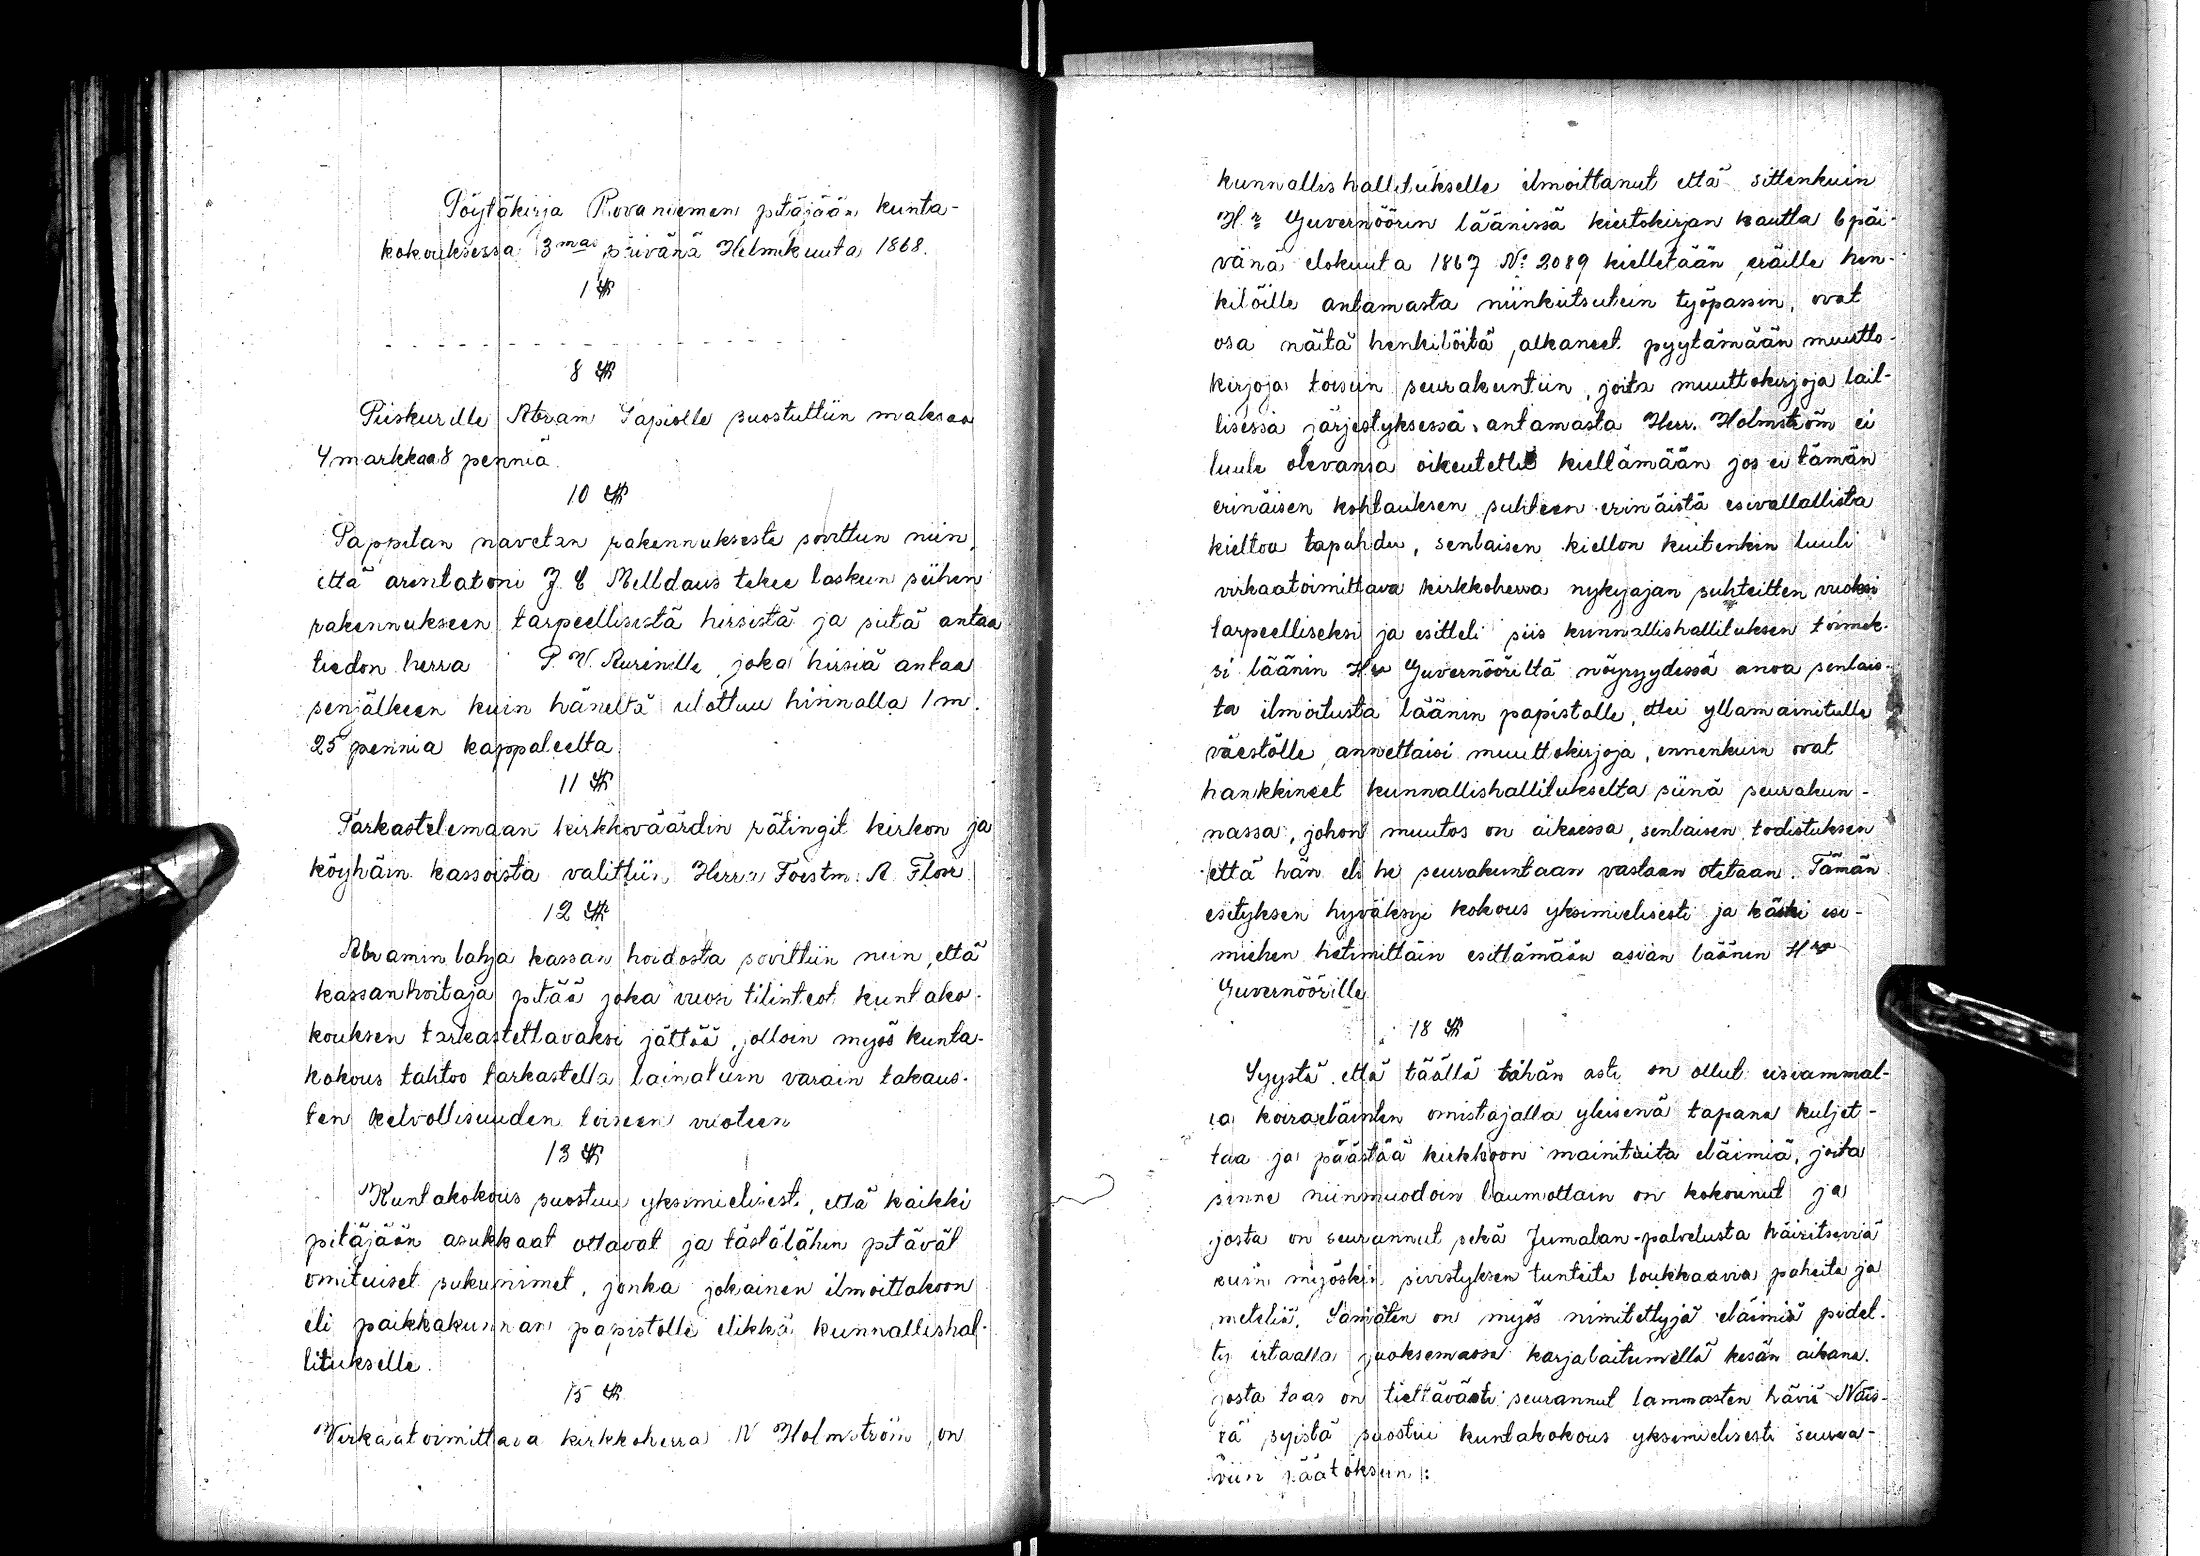 Pöytäkirja Rovaniemen pitäjään kunta-
kokouksessa 3mas päivänä Helmikuuta 1868.
1 §
8 §
Piiskurille Abram Sapiolle suostuttiin maksaa
4 markkaa 8 penniä
10 §
Pappilan navetan rakennuksesta sovittun niin,
että arentatori J. E Melldaus tekee laskun siihen
rakennukseen tarpeellisista hirsistä ja siitä antaa
tiedon herra P. V. Aurenille, joka hirsiä antaa
senjälkeen kuin häneltä ulottuu hinnalla 1 m.
25 penniä kappaleelta
11 §
Tarkastelemaan kirkkoväärdin rätingit kirkon ja
köyhäin kassoista valittiin Herra Forstm. A Flore
12 §
Abramin lahja kassan hoidosta sovittiin niin, että
kassanhoitaja pitää joka vuosi tilinteot kuntako-
kouksen tarkastettavaksi jättää, jolloin myös kunta-
kokous tahtoo tarkastella lainatuin varain takaus-
ten kelvollisuuden toiseen vuoteen
13 §
Kuntakokous suostuu yksimielisesti, että kaikki
pitäjään asukkaat ottavat ja tästälähin pitävät
omituiset sukunimet, jonka jokainen ilmoittakoon
eli paikkakunnan papistolle elikkä kunnallishal-
litukselle.
15 §
Virkaatoimittava kirkkoherra N Holmström on
kunnallishallitukselle ilmoittanut että sittenkuin
H:r Guvernöörin läänissä kiertokirjan kautta 6 päi-
vänä elokuuta 1867 No 2089 kielletään eräille hen-
kilöille antamasta niinkutsutuin työpassin, ovat
osa näitä henkilöitä alkaneet pyytämään muutto-
kirjoja toisiin seurakuntiin, joita muuttokirjoja lail-
lisessa järjestyksessä antamasta Herr. Holmström ei
luule olevansa oikeutettu kieltämään jos ei tämän
erinäisen kohtauksen suhteen erinäistä esivallallista
kieltoa tapahdu, senlaisen kiellon kuitenkin luuli
virkaatoimittava kirkkoherra nykyajan suhteitten vuoksi
tarpeelliseksi ja esitteli siis kunnallishallituksen toimek-
si läänin Hra Guvernööriltä nöyryydessä anoa senlais-
ta ilmoitusta läänin papistolle, ettei yllämainitulle
väestölle annettaisi muuttokirjoja, ennenkuin ovat
hankkineet kunnallishallitukselta siinä seurakun-
nassa, johon muutos on aikeissa, senlaisen todistuksen
että hän eli he seurakuntaan vastaan otetaan. Tämän
esityksen hyväksyi kokous yksimielisesti ja käski esi-
miehen hetimittäin esittämään asian läänin Hra
Guvernöörille
18 §
Syystä että täällä tähän asti on ollut useammal-
la koiraeläinten omistajalla yleisenä tapana kuljet-
taa ja päästää kirkkoon mainituita eläimiä, joita
sinne niinmuodoin laumottain on kokounut ja
josta on seurannut sekä Jumalan-palvelusta häiritseviä
kuin myöskin sivistyksen tunteita loukkaavia paheita ja
meteliä. Samaten on myös nimitettyjä eläimiä pidet-
ty irtaalla juoksemassa karjalaitumella kesän aikana.
josta taas on tiettävästi seurannut lammasten häviö Näis-
tä syistä suostui kuntakokous yksimielisesti seuraa-
viin päätöksiin: